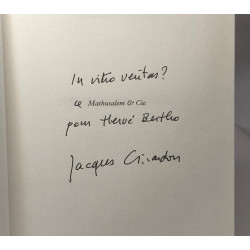 In vitro veritas?
ce Mathusalem & Cie
pour Hervé Bertho
Jacques Girardon